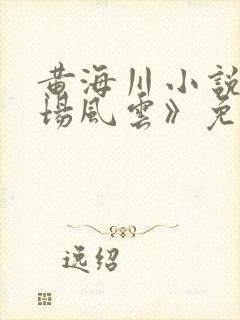 黄海川小説
場風雲》免
逸绍